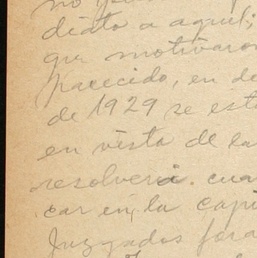 no
diato a aquel;
que motivaron
parecido, en de
de 1929 se est
en vista de la
resolverá cua
car en la capi
Juzgados fora